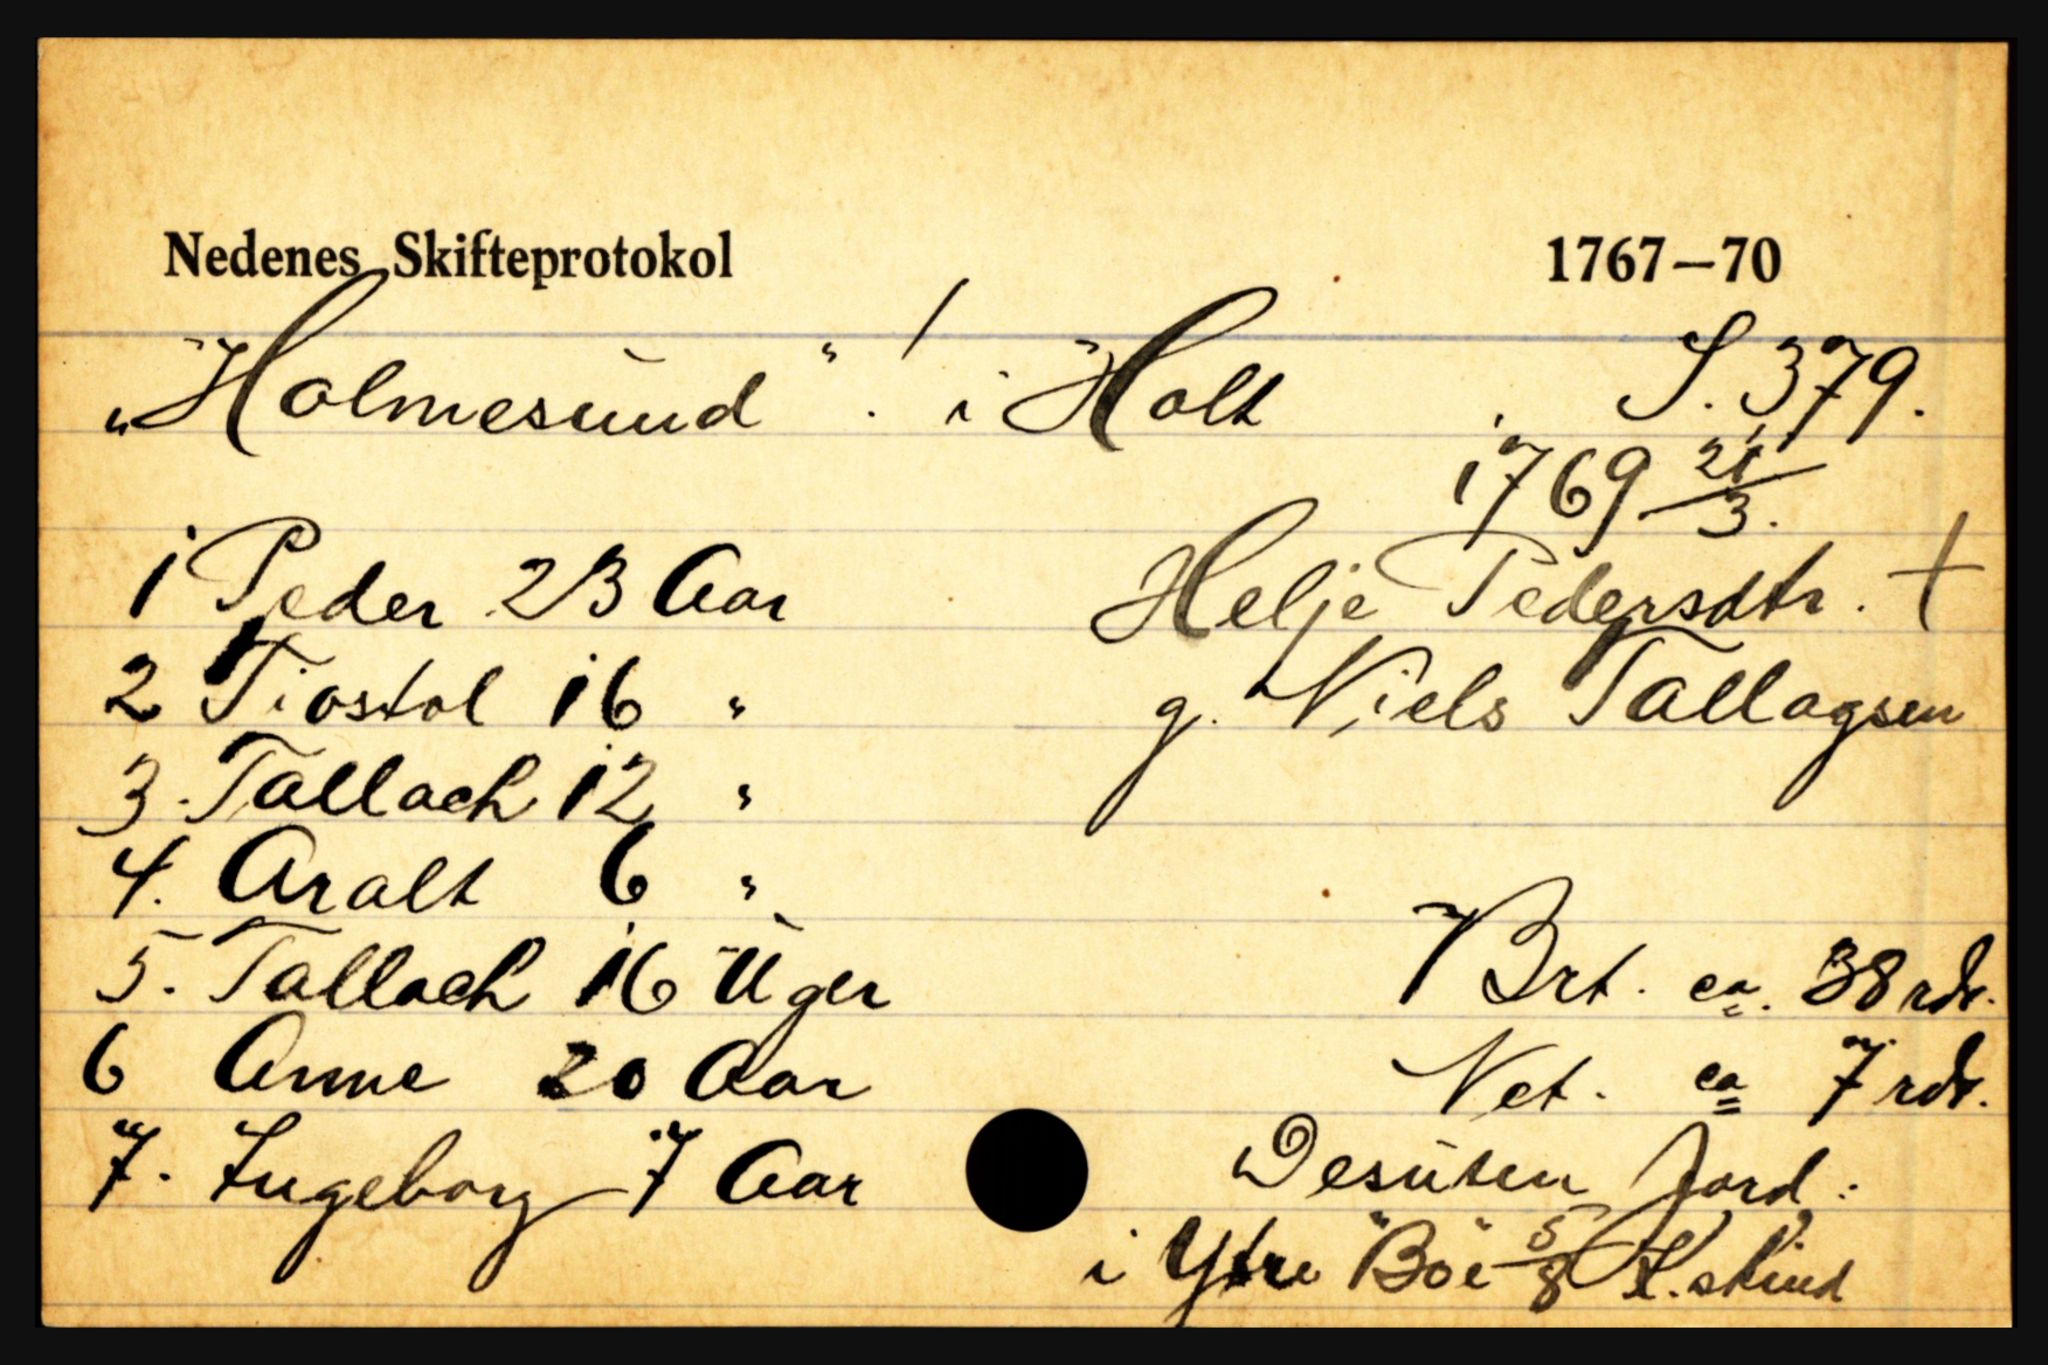 Nedenes Skifteprotokol 1767–70
„Holmesund". i Holt S. 379.
1769 21/3.
1 Peder 23 Aar
Helje Pedersdtr. †
2 Tiostol 16 "
g. Niels Tallagsen
3. Tallach 12 "
4. Aralt 6 "
5. Tallach 16 Uger
Brt. ca. 38 rdr.
6 Anne 20 Aar
Net. ca 7 rdr.
7. Ingeborg 7 Aar
Desuten Jord:
i Ytre "Böe" 5/8 K. skind